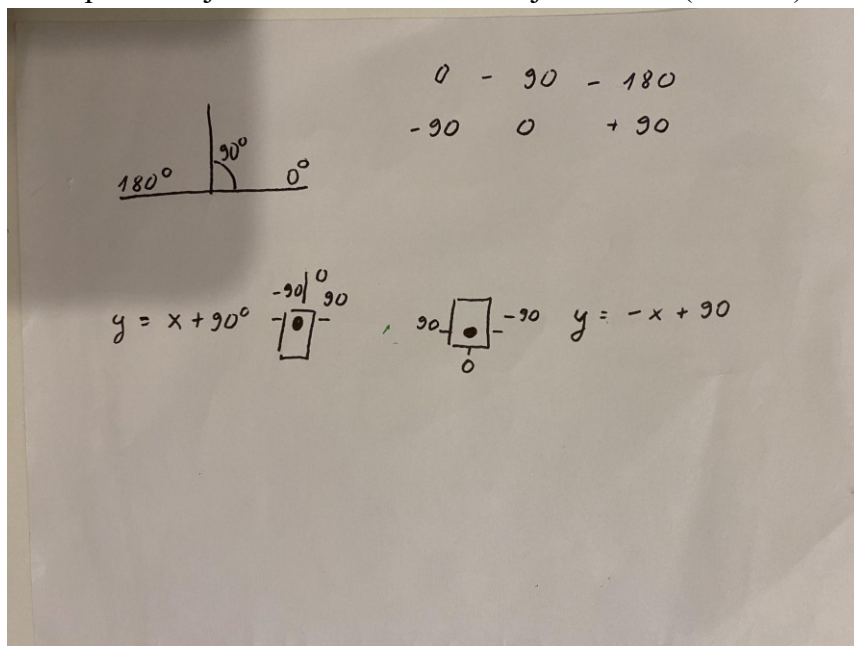 0 - 90 - 180
-90 0 + 90
180° 90° 0°
y = x + 90° -90 0 90
90 -90 0 y = -x + 90